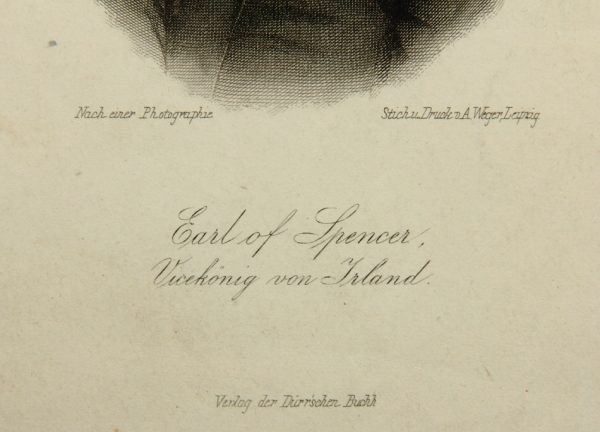 Nach einer Photographie
Stich u. Druck v. A. Weger, Leipzig
Earl of Spencer,
Vicekönig von Irland.
Verlag der Dürr'schen Buchh